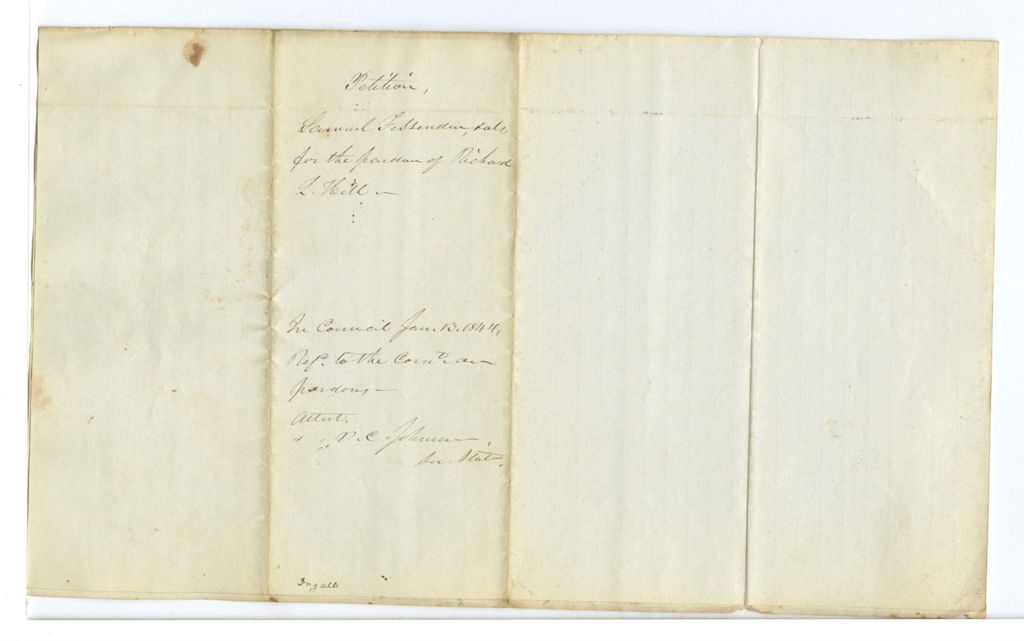 Petition,
Samuel Fessenden, & als,
for the pardon of Richard
L. Hill —
In Council Jan. 13. 1844,
Refd. to the Comte. on
pardons —
Attest.
P. C. Johnson,
Sec. State.
Ingalls